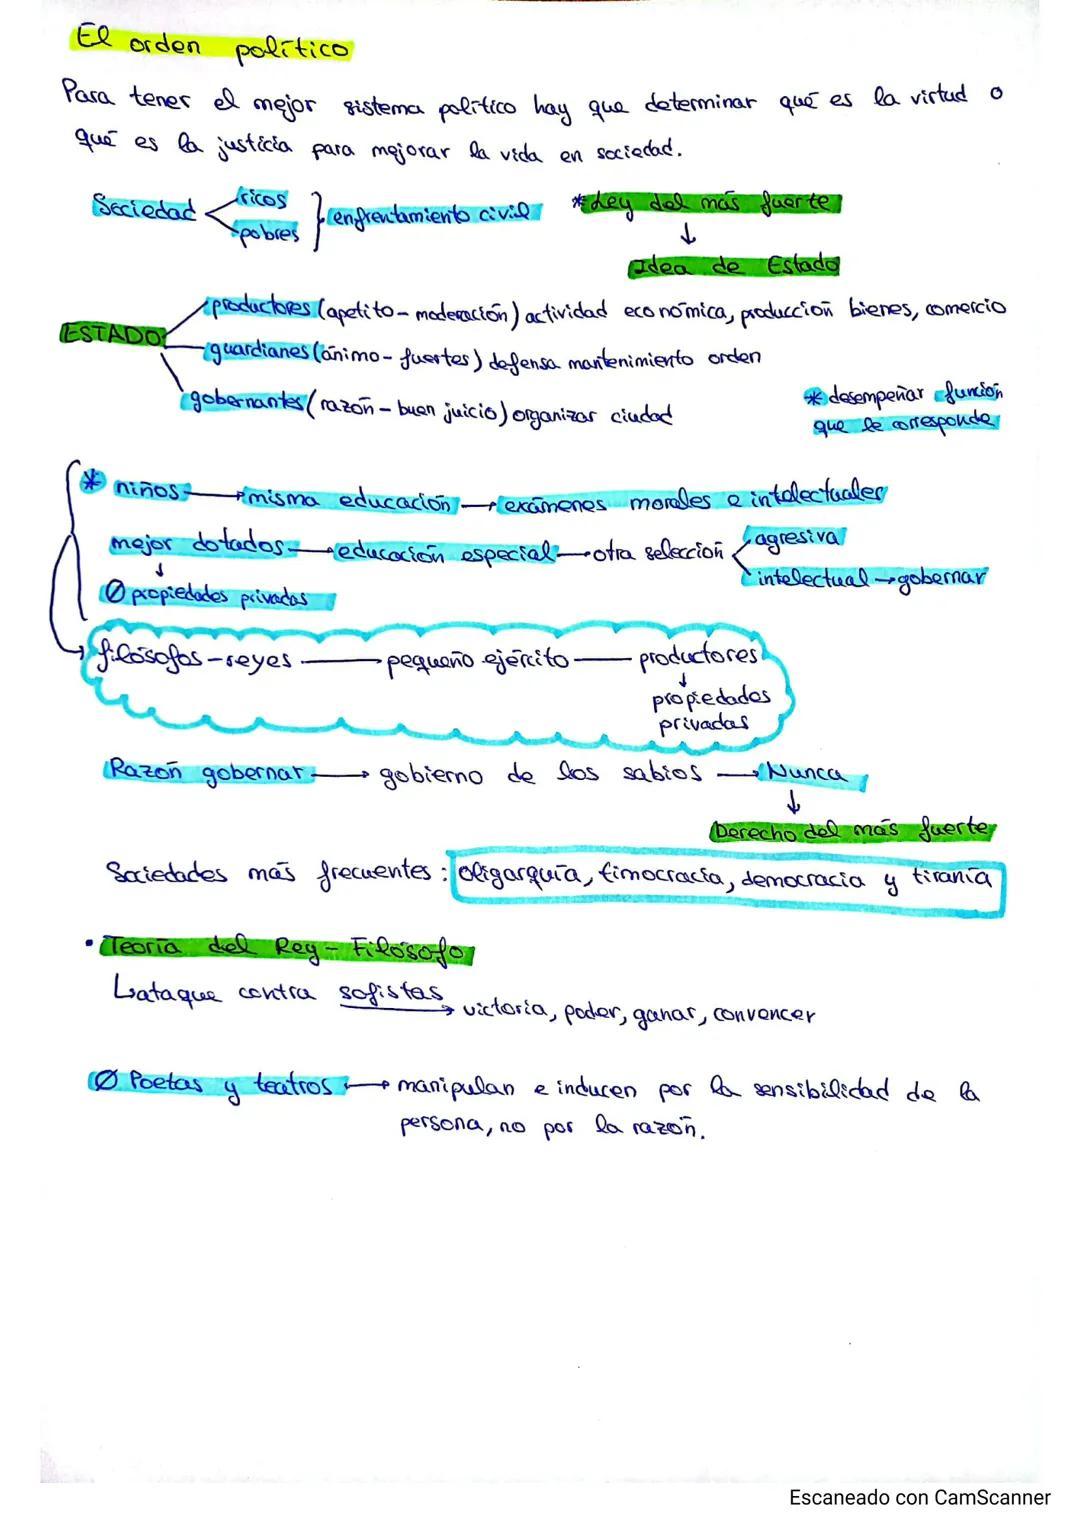 El orden político
Para tener el mejor sistema político hay que determinar qué es la virtud o
qué es la justicia para mejorar la vida en sociedad.
Sociedad < ricos
pobres } enfrentamiento civil
* Ley del más fuerte
↓
Idea de Estado
ESTADO
productores (apetito - moderación) actividad económica, producción bienes, comercio
guardianes (ánimo - fuertes) defensa mantenimiento orden
gobernantes (razón - buen juicio) organizar ciudad
* desempeñar función
que le corresponde
* niños → misma educación → exámenes morales e intelectuales
mejor dotados → educación especial → otra selección < agresiva
intelectual → gobernar
↓
Ø propiedades privadas
filósofos-reyes — pequeño ejército — productores
↓
propiedades
privadas
Razón gobernar → gobierno de los sabios → Nunca
↓
Derecho del más fuerte
Sociedades más frecuentes: oligarquía, timocracia, democracia y tiranía
• Teoría del Rey - Filósofo
↳ ataque contra sofistas → victoria, poder, ganar, convencer
Ø Poetas y teatros → manipulan e inducen por la sensibilidad de la
persona, no por la razón.
Escaneado con CamScanner